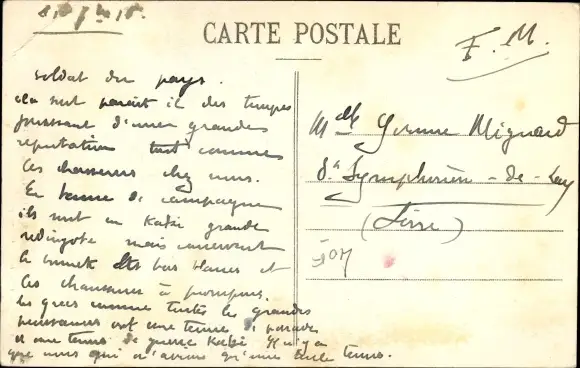 CARTE POSTALE
F. M.
soldat du pays.
Ils sont paraît il des troupes
jouissant d'une grande
réputation tout comme
les chasseurs chez nous.
En tenue de campagne
ils sont en kaki grande
redingote mais conservent
le bonnet les bas blancs et
les chaussures à pompons.
les grecs comme toutes les grandes
puissances ont une tenue de parade
et une tenue de guerre kaki Il n'y a
que nous qui n'avions qu'une seule tenue.
Mlle Yvonne Mignard
St Symphorien - de - Lay
(Loire)